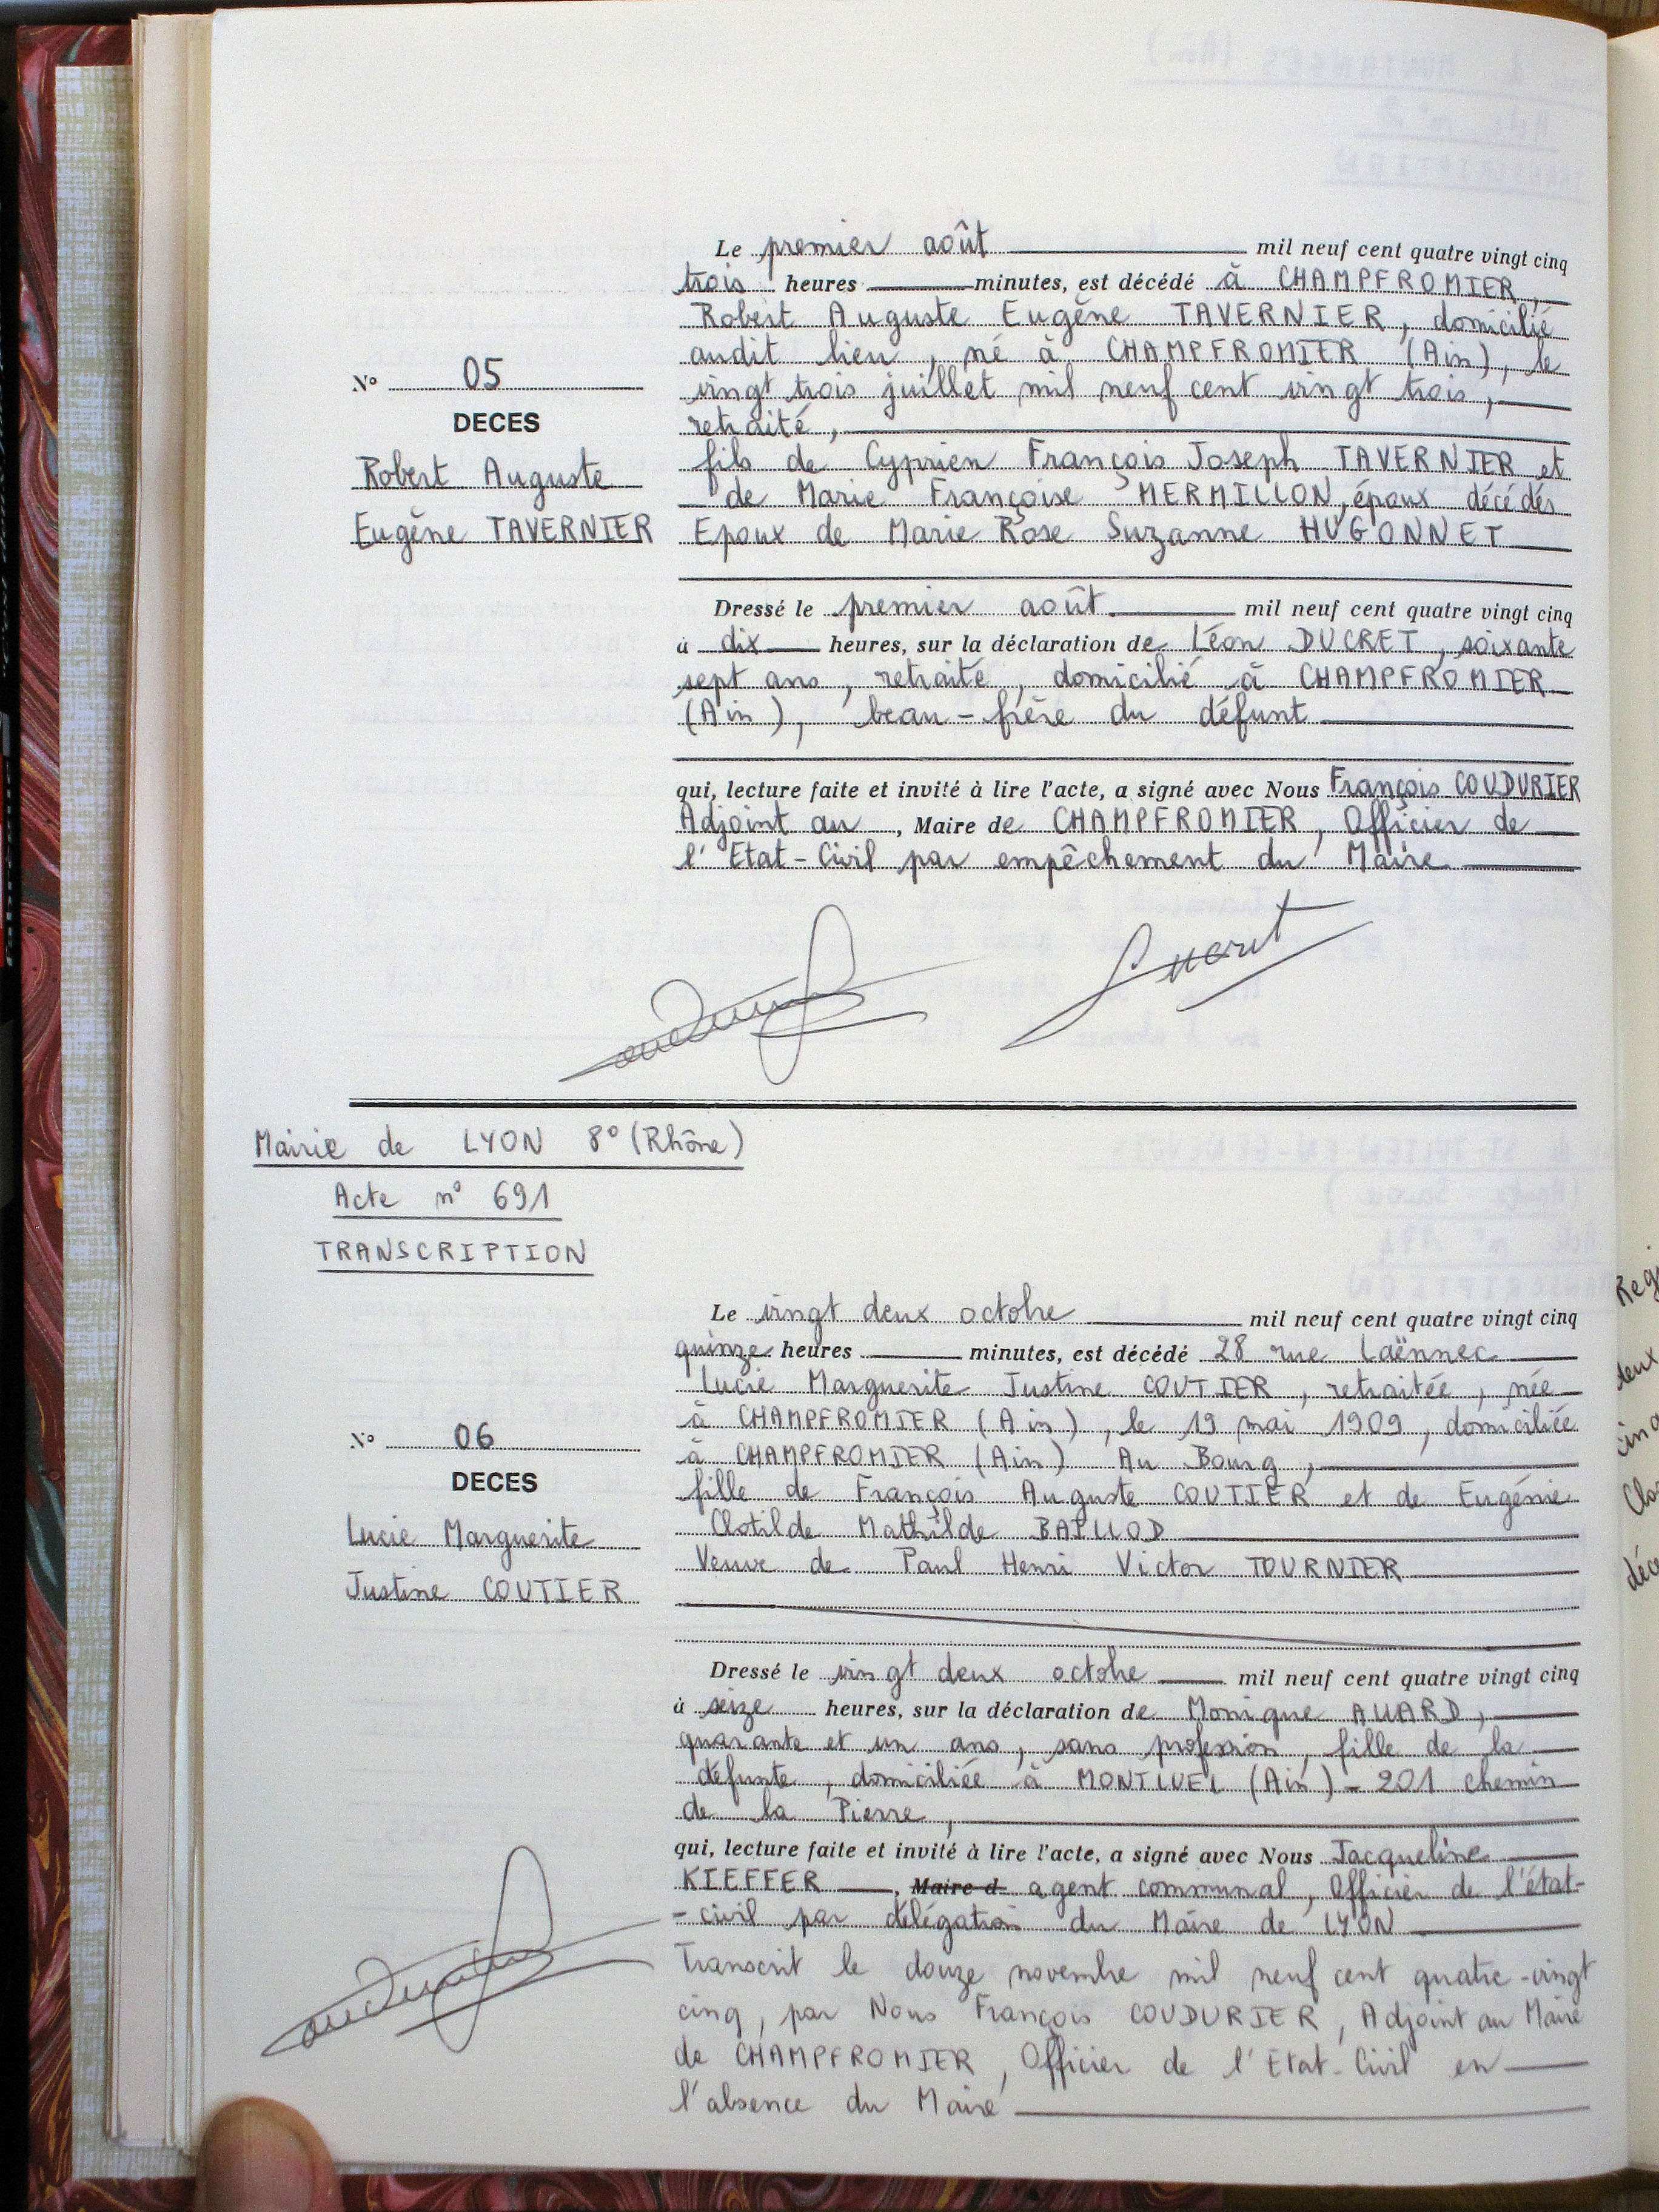 Le premier août mil neuf cent quatre vingt cinq
trois heures minutes, est décédé à CHAMPFROMIER,
Robert Auguste Eugène TAVERNIER, domicilié
audit lieu, né à CHAMPFROMIER (Ain), le
vingt trois juillet mil neuf cent vingt trois,
retraité,
fils de Cyprien François Joseph TAVERNIER et
de Marie Françoise MERMILLON, époux décédés
Epoux de Marie Rose Suzanne HUGONNET
N° 05
DECES
Robert Auguste
Eugène TAVERNIER
Dressé le premier août mil neuf cent quatre vingt cinq
à dix heures, sur la déclaration de Léon DUCRET, soixante
sept ans, retraité, domicilié à CHAMPFROMIER
(Ain), beau-frère du défunt
qui, lecture faite et invité à lire l'acte, a signé avec Nous François COUDURIER
Adjoint au, Maire de CHAMPFROMIER, Officier de
l'Etat-Civil par empêchement du Maire
Mairie de LYON 8° (Rhône)
Acte n° 691
TRANSCRIPTION
Le vingt deux octobre mil neuf cent quatre vingt cinq
quinze heures minutes, est décédé 28 rue Laënnec
Lucie Marguerite Justine COUTIER, retraitée, née
à CHAMPFROMIER (Ain), le 19 mai 1909, domiciliée
à CHAMPFROMIER (Ain) Au Bourg,
fille de François Auguste COUTIER et de Eugénie
Clotilde Mathilde BAILLOD
Veuve de Paul Henri Victor TOURNIER
N° 06
DECES
Lucie Marguerite
Justine COUTIER
Dressé le vingt deux octobre mil neuf cent quatre vingt cinq
à seize heures, sur la déclaration de Monique ALLARD,
quarante et un ans, sans profession, fille de la
défunte, domiciliée à MONTLUEL (Ain) - 201 chemin
de la Pierre,
qui, lecture faite et invité à lire l'acte, a signé avec Nous Jacqueline
KIEFFER, Maire d agent communal, Officier de l'état-
-civil par délégation du Maire de LYON
Transcrit le douze novembre mil neuf cent quatre-vingt
cinq, par Nous François COUDURIER, Adjoint au Maire
de CHAMPFROMIER, Officier de l'Etat-Civil en
l'absence du Maire